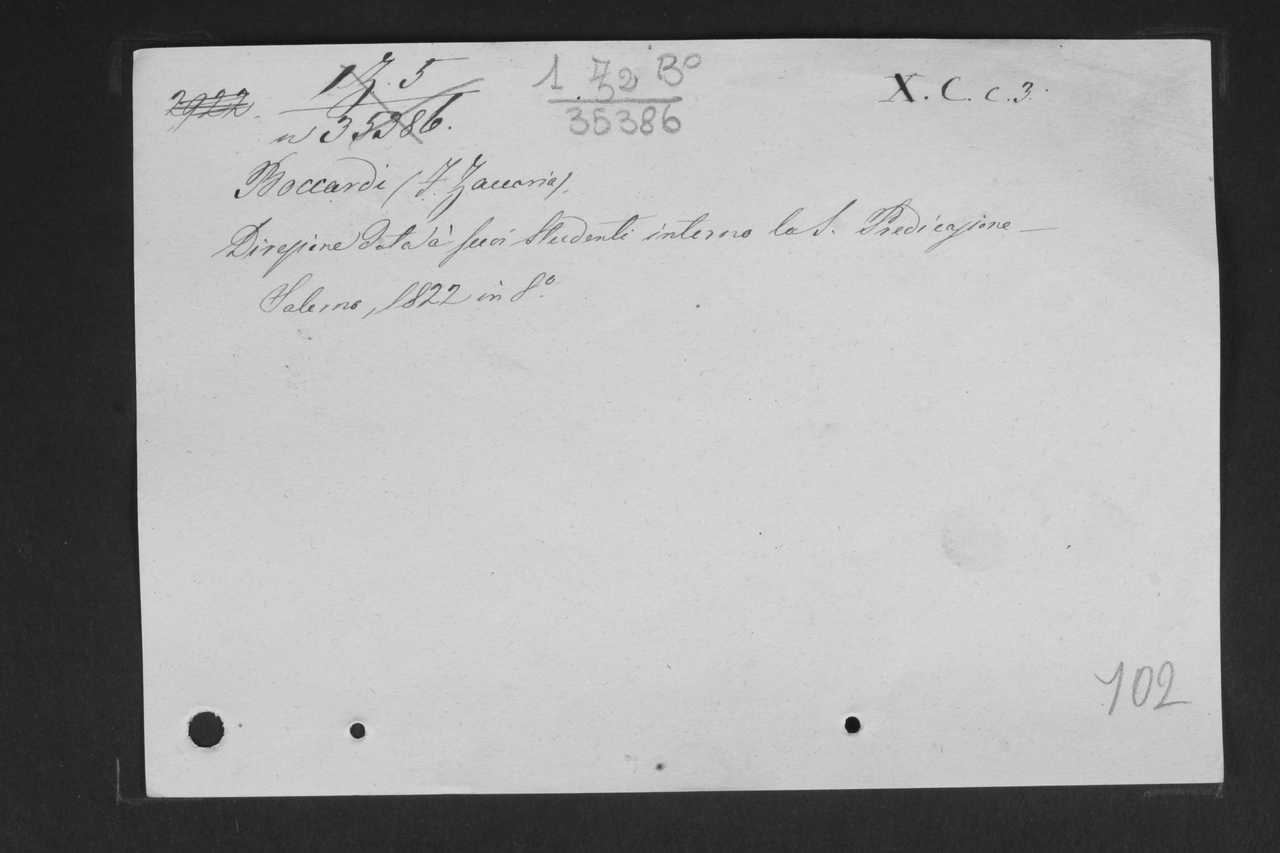 1 Z. 5
n 35386.
1 Z2 Bº
35386
X. C. c. 3.
Boccardi (F. Zaccaria).
Direzione data à suoi studenti interno la S. Predicazione —
Salerno, 1822 in 8.º
102